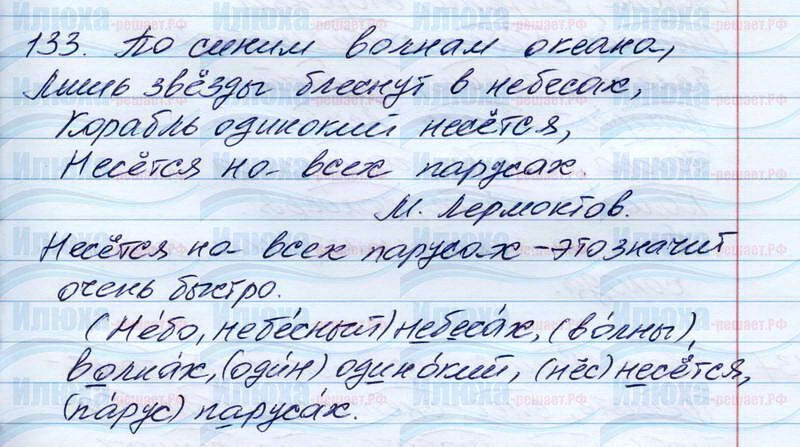 133. По синим волнам океана,
Лишь звёзды блеснут в небесах,
Корабль одинокий несётся,
Несётся на всех парусах.
М. Лермонтов.
Несётся на всех парусах - это значит
очень быстро.
(Не́бо, небе́сный) небеса́х, (во́лны)
волна́х, (оди́н) одино́кий, (нёс) несётся,
(па́рус) паруса́х.